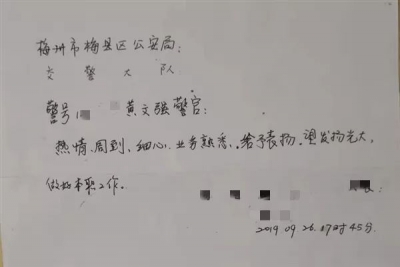 梅州市梅县区公安局:
交警大队
警号1 黄文强警官:
热情、周到、细心、业务熟悉、给予表扬。望发扬光大,
做好本职工作。
2019.09.26.17时45分